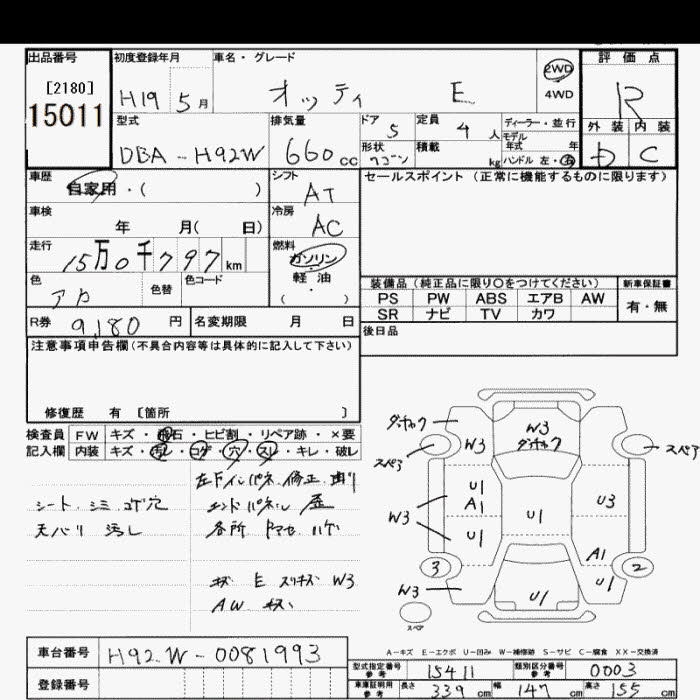 出品番号 初度登録年月 車名・グレード 評価点
[2180] H19 5月 オッティ E 2WD 4WD R
15011
型式 排気量 ドア 5 定員 4人 ディーラー・並行 外装 内装
モデル年式 年
DBA-H92W 660cc 形状 ワゴン 積載 kg ハンドル 左・右 D C
車歴 シフト セールスポイント(正常に機能するものに限ります)
自家用・( ) AT
車検 冷房
年 月( 日) AC
走行 燃料
15万0千797km ガソリン
軽油
色 色替 色コード ・
アカ ( )
装備品(純正品に限り〇をつけてください) 新車保証書
PS PW ABS エアB AW 有・無
SR ナビ TV カワ
R券 9,180円 名変期限 月 日 後日品
注意事項申告欄(不具合内容等は具体的に記入して下さい)
修復歴 有 [箇所 ]
検査員 FW キズ・飛石・ヒビ割・リペア跡・×要
記入欄 内装 キズ・汚レ・コゲ・穴・スレ・キレ・破レ
左下インパネ 修正
シート シミ コゲ穴 エンドパネル 歪
天バリ 汚レ 各所
キズ E スリキズ W3
AW キズ
W3
W3
スペア スペア
U1
A1 U3
W3 U1 U1
3 A1 2
W3 U1 U1
スペア
A-キズ E-エクボ U-凹み W-補修跡 S-サビ C-腐食 XX-交換済
車台番号 H92W-0081993
型式指定番号 参考 15411 類別区分番号 参考 0003
登録番号 車庫証明用 参考 長さ 339cm 幅 147cm 高さ 155cm